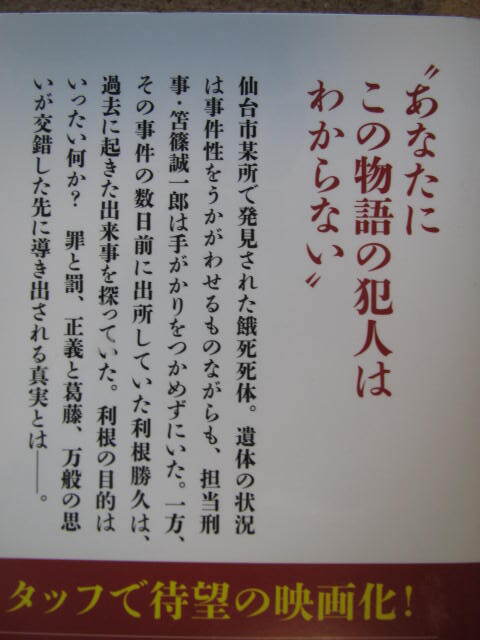 〝あなたに
この物語の犯人は
わからない〟
仙台市某所で発見された餓死死体。遺体の状況
は事件性をうかがわせるものながらも、担当刑
事・笘篠誠一郎は手がかりをつかめずにいた。一方、
その事件の数日前に出所していた利根勝久は、
過去に起きた出来事を探っていた。利根の目的は
いったい何か？　罪と罰、正義と葛藤、万般の思
いが交錯した先に導き出される真実とは――。
タッフで待望の映画化！